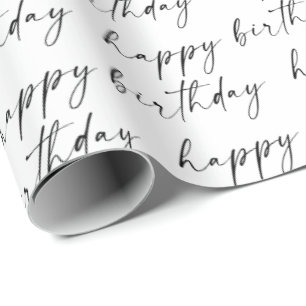 thday
happy birth
happy
birthday
h
thday
happy